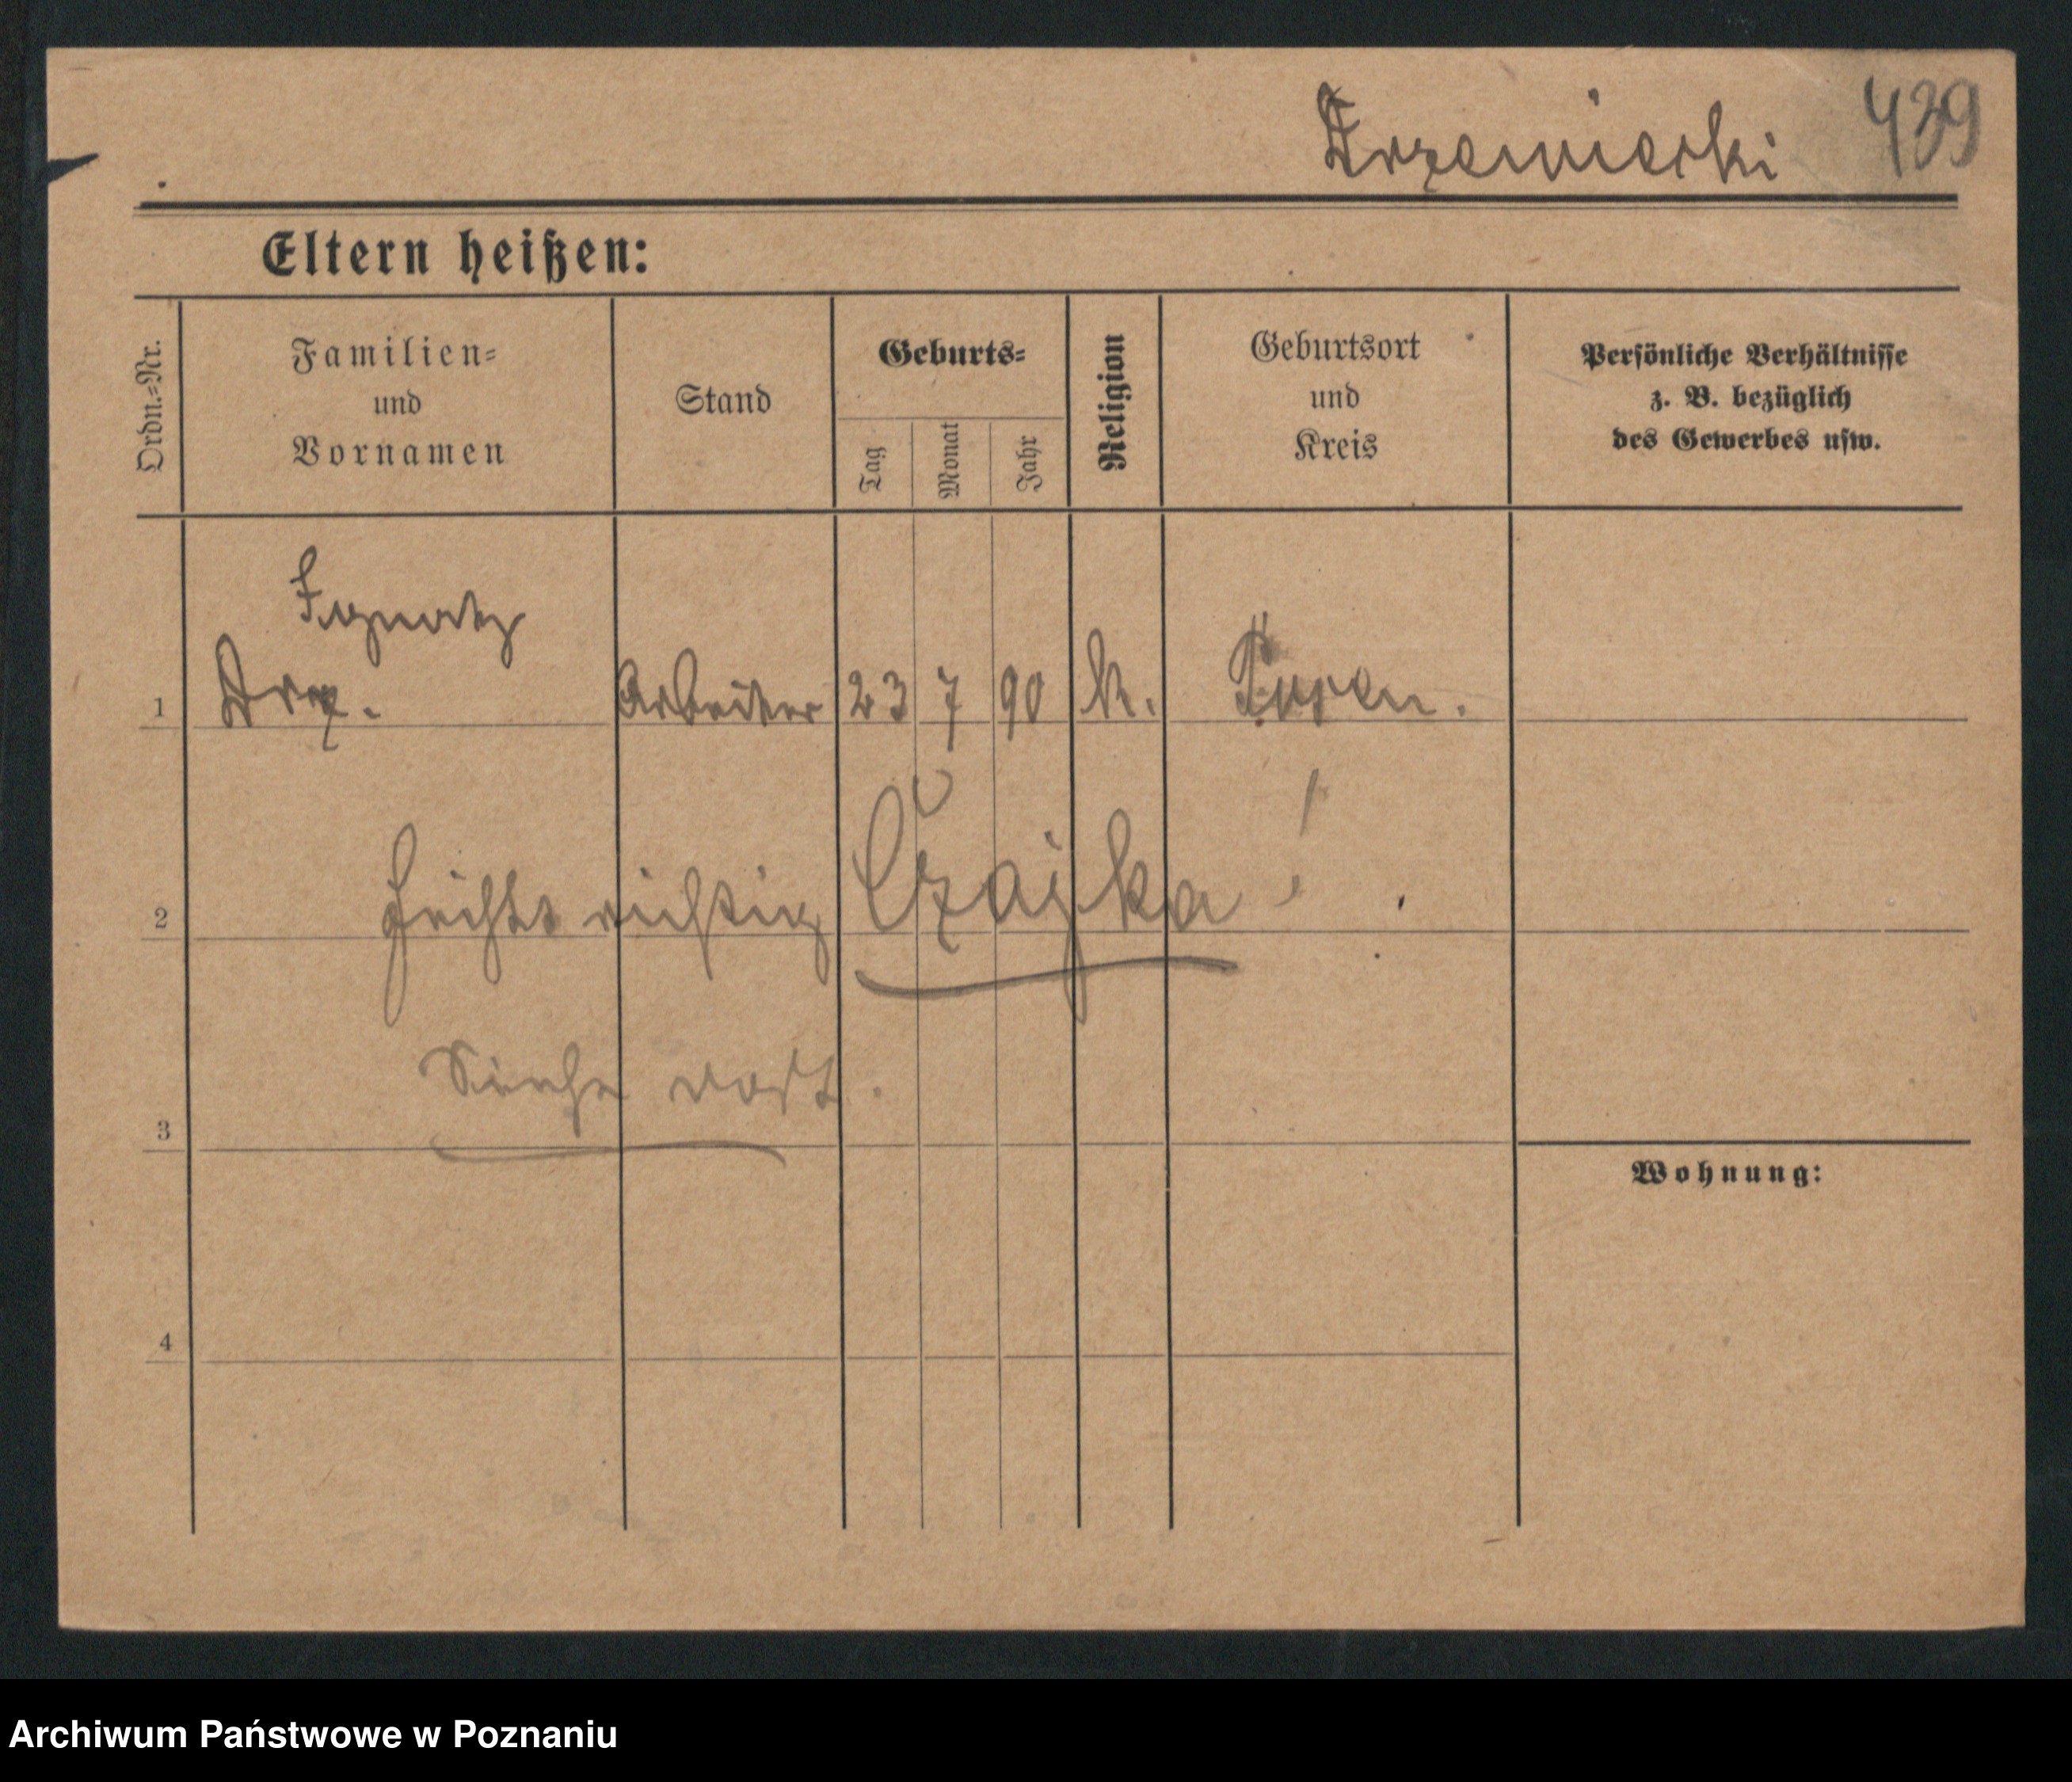 Drzewiecki 439
Eltern heißen:
Ordn.=Nr.
Familien=
und
Vornamen
Stand
Geburts=
Tag
Monat
Jahr
Religion
Geburtsort
und
Kreis
Persönliche Verhältnisse
z. B. bezüglich
des Gewerbes usw.
Ignatz
1 Drz. Arbeiter 23 7 90 k. Posen.
2 heißt richtig Czajka !
3 Siehe dort.
Wohnung:
4
Archiwum Państwowe w Poznaniu